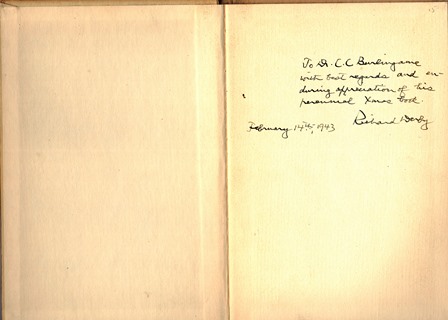 To Dr. C. C. Burlingame
with best regards and en-
during appreciation of his
perennial Xmas book.
Richard Derby
February 14th, 1943